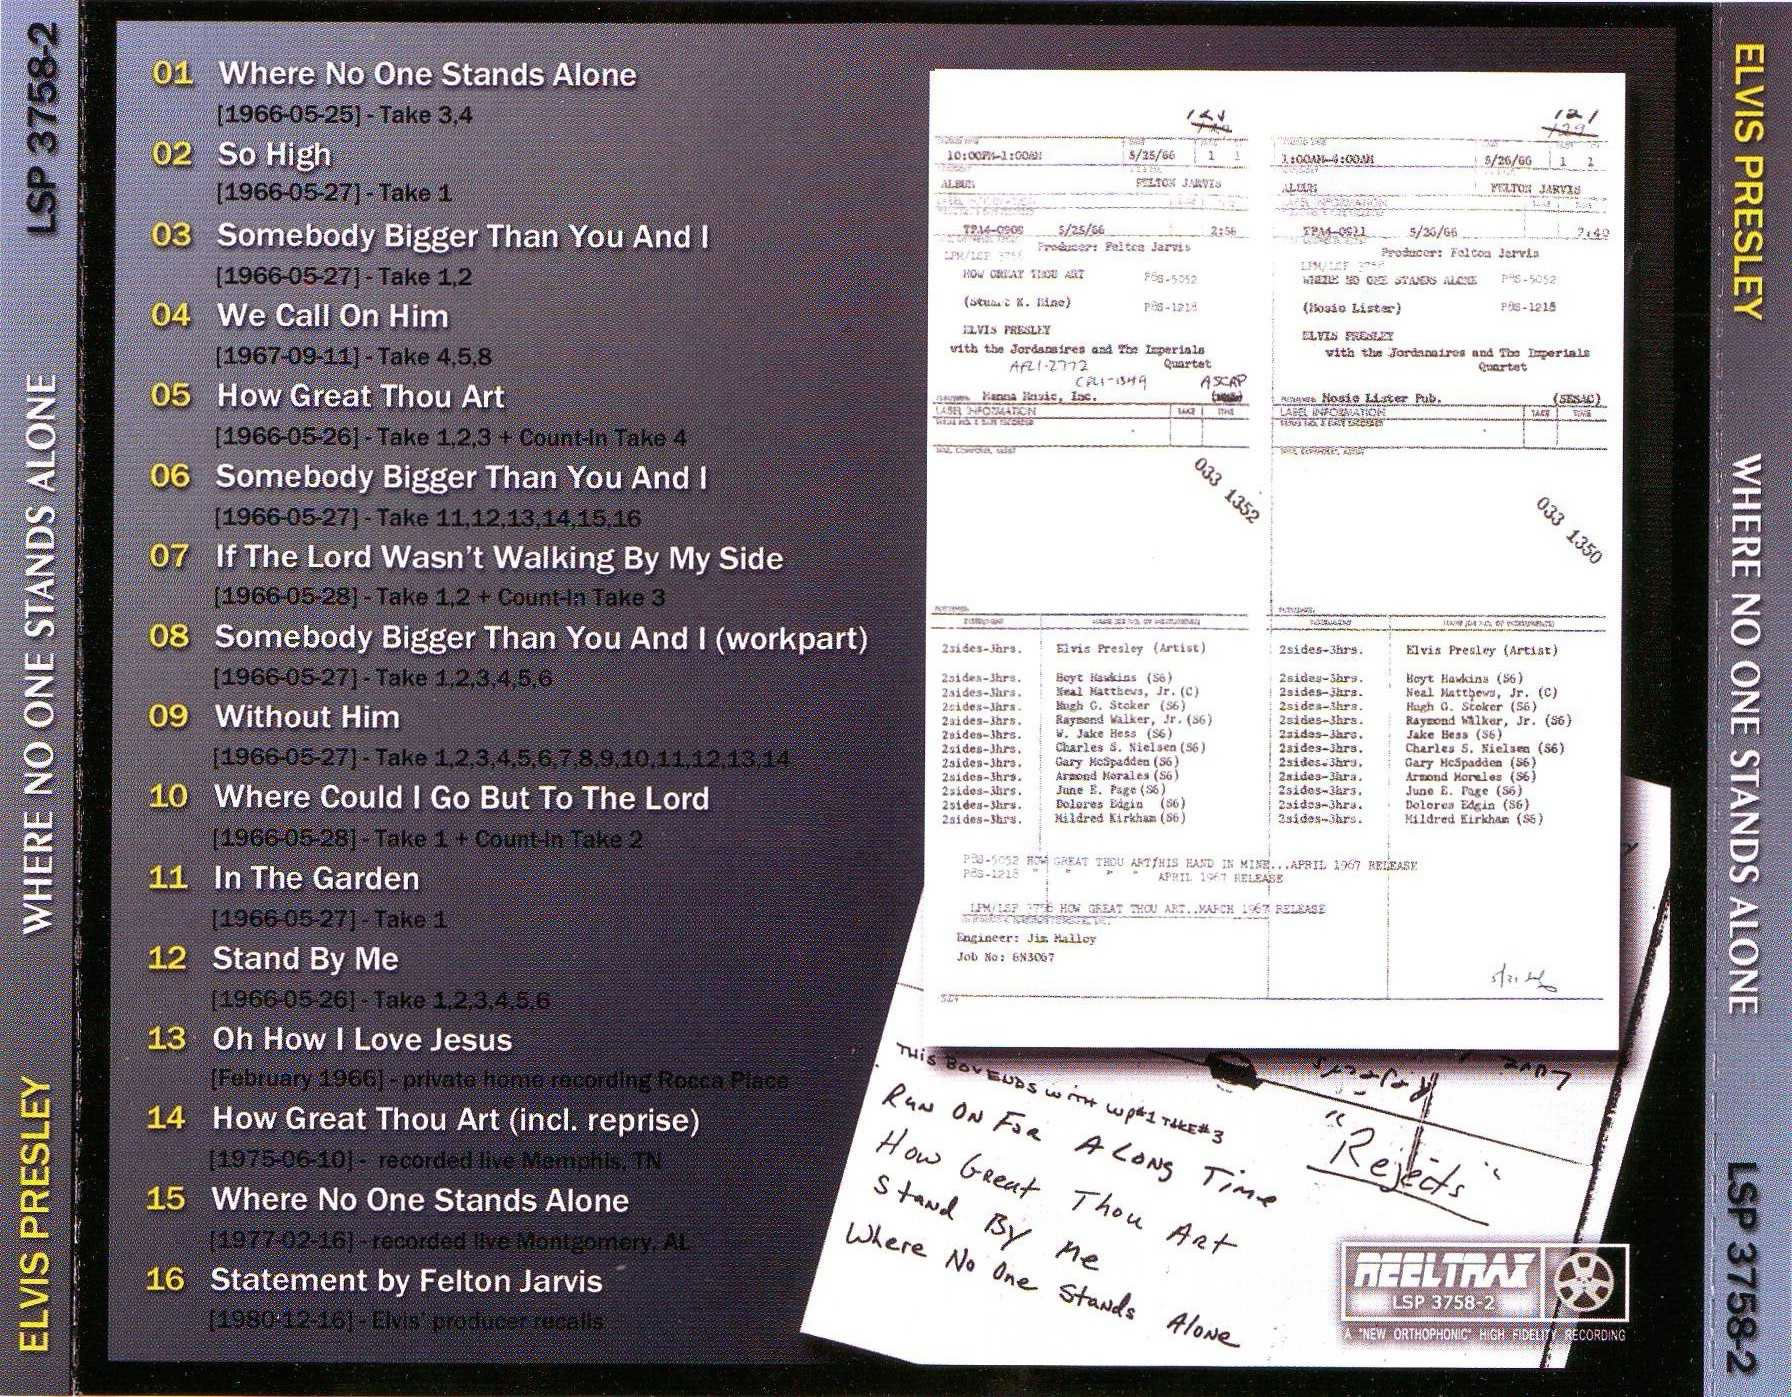 LSP 3758-2
WHERE NO ONE STANDS ALONE
ELVIS PRESLEY
01 Where No One Stands Alone
[1966-05-25] - Take 3,4
02 So High
[1966-05-27] - Take 1
03 Somebody Bigger Than You And I
[1966-05-27] - Take 1,2
04 We Call On Him
[1967-09-11] - Take 4,5,8
05 How Great Thou Art
[1966-05-26] - Take 1,2,3 + Count-In Take 4
06 Somebody Bigger Than You And I
[1966-05-27] - Take 11,12,13,14,15,16
07 If The Lord Wasn't Walking By My Side
[1966-05-28] - Take 1,2 + Count-In Take 3
08 Somebody Bigger Than You And I (workpart)
[1966-05-27] - Take 1,2,3,4,5,6
09 Without Him
[1966-05-27] - Take 1,2,3,4,5,6,7,8,9,10,11,12,13,14
10 Where Could I Go But To The Lord
[1966-05-28] - Take 1 + Count-In Take 2
11 In The Garden
[1966-05-27] - Take 1
12 Stand By Me
[1966-05-26] - Take 1,2,3,4,5,6
13 Oh How I Love Jesus
[February 1966] - private home recording Rocca Place
14 How Great Thou Art (incl. reprise)
[1975-06-10] - recorded live Memphis, TN
15 Where No One Stands Alone
[1977-02-16] - recorded live Montgomery, AL
16 Statement by Felton Jarvis
[1980-12-16] - Elvis' producer recalls
10:00PM-1:00AM 5/25/66 1 1
ALBUM FELTON JARVIS
5/25/66 2:56
Producer: Felton Jarvis
LPM/LSP
HOW GREAT THOU ART P8S-5052
(Stuart K. Hine) P8S-1218
ELVIS PRESLEY
with the Jordanaires and The Imperials
Quartet
AFL1-2772
CPL1-1349 ASCAP
Manna Music, Inc.
LABEL INFORMATION TAKE TIME
033 1352
2sides-3hrs. Elvis Presley (Artist)
2sides-3hrs. Hoyt Hawkins (S6)
2sides-3hrs. Neal Matthews, Jr. (C)
2sides-3hrs. Hugh G. Stoker (S6)
2sides-3hrs. Raymond Walker, Jr. (S6)
2sides-3hrs. W. Jake Hess (S6)
2sides-3hrs. Charles S. Nielsen (S6)
2sides-3hrs. Gary McSpadden (S6)
2sides-3hrs. Armond Morales (S6)
2sides-3hrs. June E. Page (S6)
2sides-3hrs. Dolores Edgin (S6)
2sides-3hrs. Mildred Kirkham (S6)
121
1:00AM-4:00AM 5/26/66 1 1
ALBUM FELTON JARVIS
5/26/66 2:40
Producer: Felton Jarvis
LPM/LSP
WHERE NO ONE STANDS ALONE P8S-5052
(Mosie Lister) P8S-1218
ELVIS PRESLEY
with the Jordanaires and The Imperials
Quartet
Mosie Lister Pub. (SESAC)
LABEL INFORMATION TAKE TIME
033 1350
2sides-3hrs. Elvis Presley (Artist)
2sides-3hrs. Hoyt Hawkins (S6)
2sides-3hrs. Neal Matthews, Jr. (C)
2sides-3hrs. Hugh G. Stoker (S6)
2sides-3hrs. Raymond Walker, Jr. (S6)
2sides-3hrs. Jake Hess (S6)
2sides-3hrs. Charles S. Nielsen (S6)
2sides-3hrs. Gary McSpadden (S6)
2sides-3hrs. Armond Morales (S6)
2sides-3hrs. June E. Page (S6)
2sides-3hrs. Dolores Edgin (S6)
2sides-3hrs. Mildred Kirkham (S6)
P8S-5052 HOW GREAT THOU ART/HIS HAND IN MINE...APRIL 1967 RELEASE
P8S-1218 " " " " APRIL 1967 RELEASE
LPM/LSP 3758 HOW GREAT THOU ART..MARCH 1967 RELEASE
Engineer: Jim Malloy
Job No: 6N3067
THIS BOX ENDS WITH WP#1 TAKE#3
RUN ON FOR A LONG TIME
HOW GREAT THOU ART
STAND BY ME
WHERE NO ONE STANDS ALONE
"Rejects"
REELTRAX
LSP 3758-2
A "NEW ORTHOPHONIC" HIGH FIDELITY RECORDING
ELVIS PRESLEY
WHERE NO ONE STANDS ALONE
LSP 3758-2